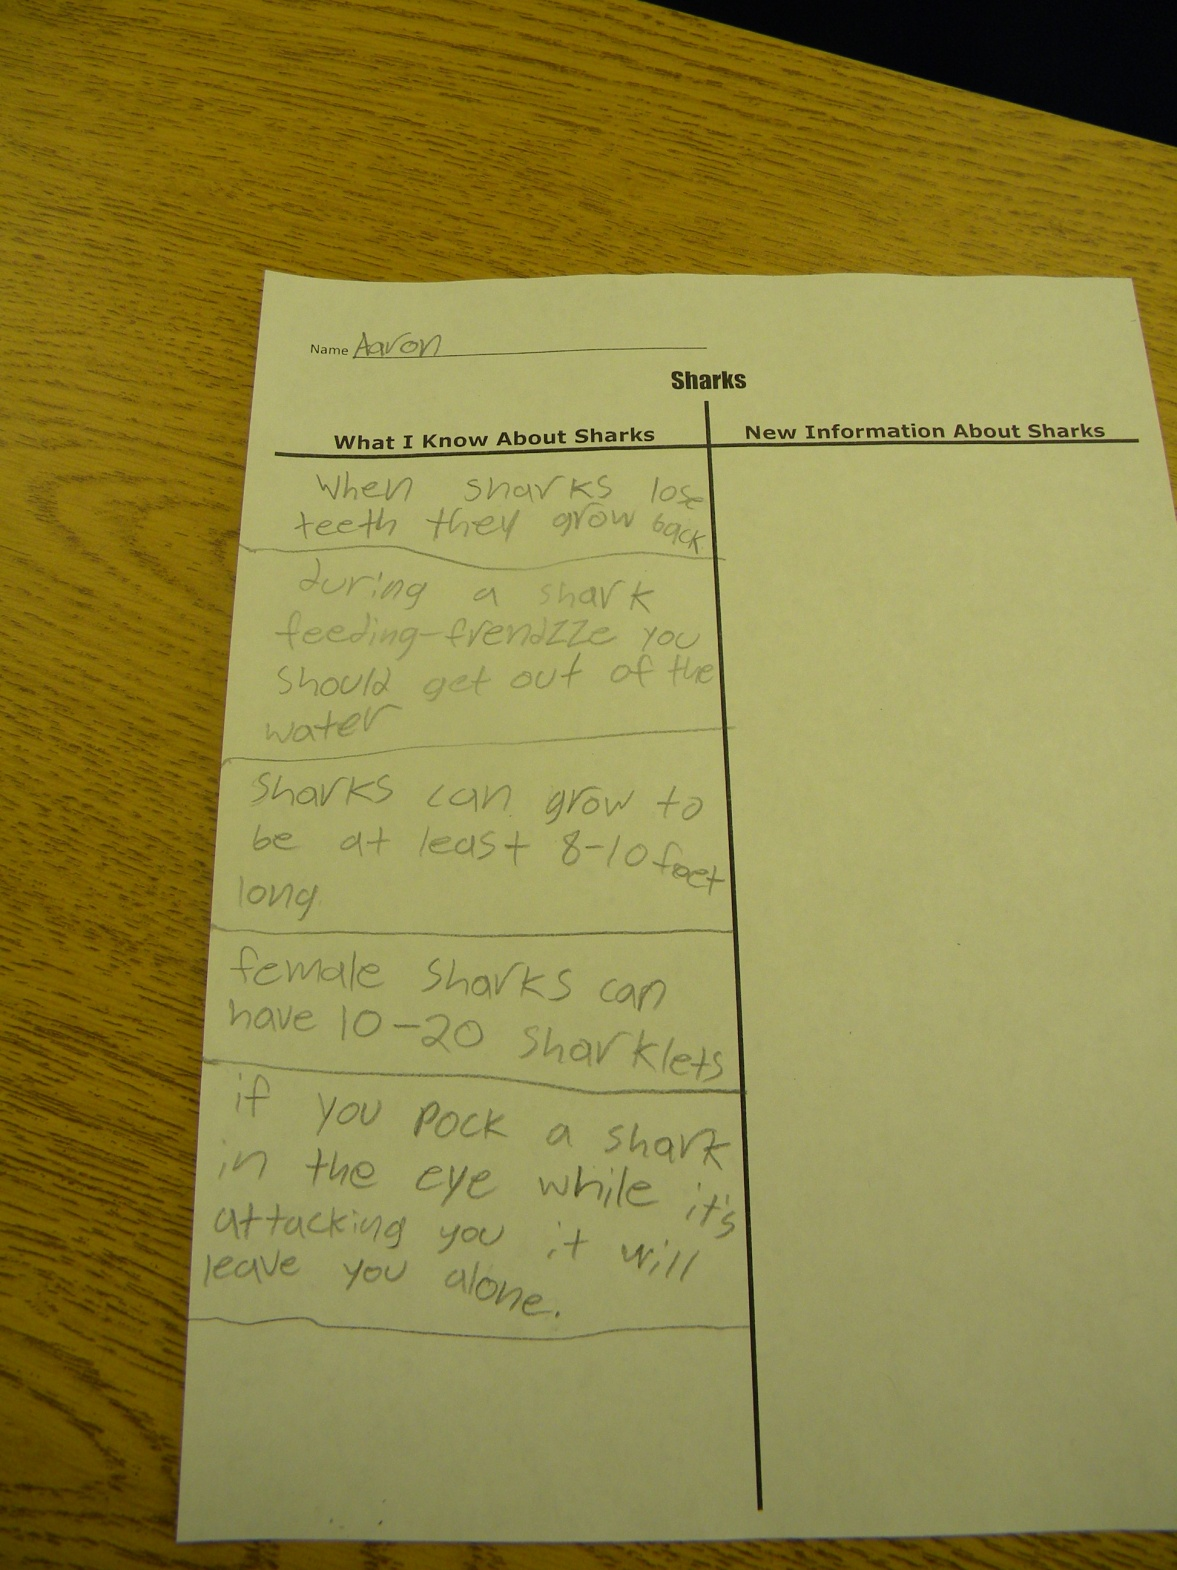 Name Aaron
Sharks
What I Know About Sharks
New Information About Sharks
When sharks lose
teeth they grow back
during a shark
feeding-frendzze you
should get out of the
water
Sharks can grow to
be at least 8-10 feet
long
female sharks can
have 10-20 sharklets
if you pock a shark
in the eye while it's
attacking you it will
leave you alone.